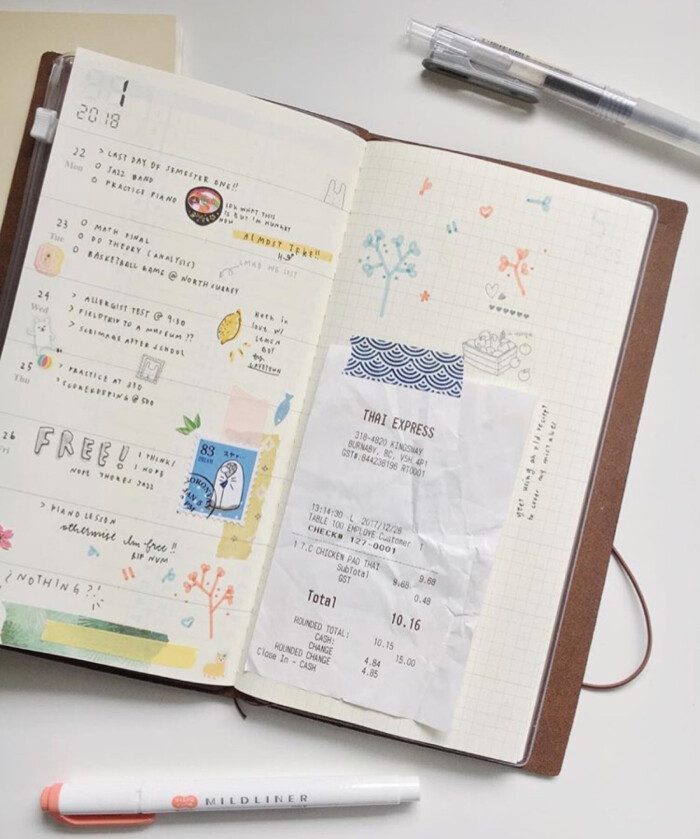 1
2018
22
Mon
> LAST DAY OF SEMESTER ONE!!
O JAZZ BAND
O PRACTICE PIANO
IDK WHAT THIS
IS BUT I'M HUNGRY
NOW
23
Tue
O MATH FINAL
O DO THEORY (ANALYSIS)
O BASKETBALL GAME @ NORTH SURREY
ALMOST THERE!!
LMAO WE LOST
24
Wed
> ALLERGIST TEST @ 9:30
> FIELDTRIP TO A MUSEUM??
> SURIMANS AFTER SCHOOL
BOY
25
Thu
> PRACTICE AT 330
> SCOREKEEPING @ 500
26
Fri
FREE!
I THINK/
I HOPE
NOPE THERES JAZZ
83
> PIANO LESSON
otherwise Im free!!
RIP NVM
¿NOTHING?!
THAI EXPRESS
318-4820 KINGSWAY
BURNABY, BC, V5H 4P1
GST#:844238196 RT0001
13:14:30 L 2017/12/28
TABLE 100 EMPLOYE Customer 1
CHECK# 127-0001
1 7.C CHICKEN PAD THAI 9.68
SubTotal 9.68
GST 0.48
Total 10.16
ROUNDED TOTAL: 10.15
CASH: 15.00
CHANGE 4.84
ROUNDED CHANGE 4.85
Close In - CASH
yeet using an old receipt
to cover my mistakes
MILDLINER